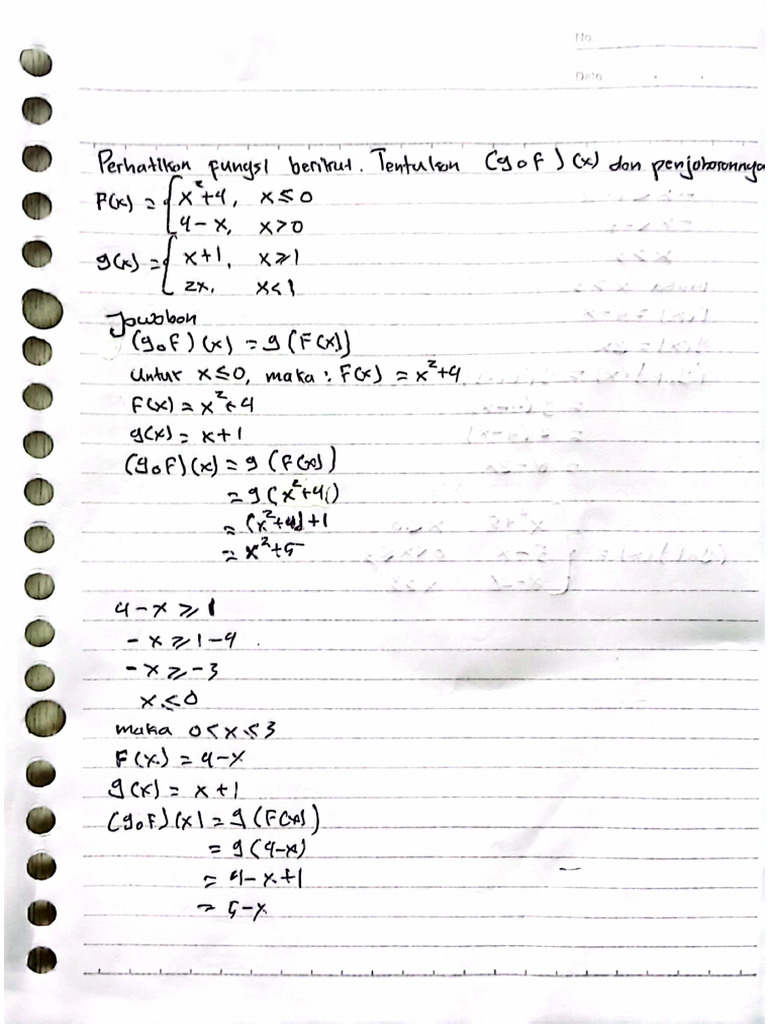 No.
Date
Perhatikan fungsi berikut. Tentukan (gof)(x) dan penjabarannya
F(x) = { x²+4, x≤0
4-x, x>0
g(x) = { x+1, x≥1
2x, x<1
Jawaban
(gof)(x) = g(F(x))
Untuk x≤0, maka : F(x) = x²+4
F(x) = x²+4
g(x) = x+1
(gof)(x) = g(F(x))
= g(x²+4)
= (x²+4)+1
= x²+5
4-x ≥ 1
-x ≥ 1-4
-x ≥ -3
x ≤ 0
maka 0<x≤3
F(x) = 4-x
g(x) = x+1
(gof)(x) = g(F(x))
= g(4-x)
= 4-x+1
= 5-x